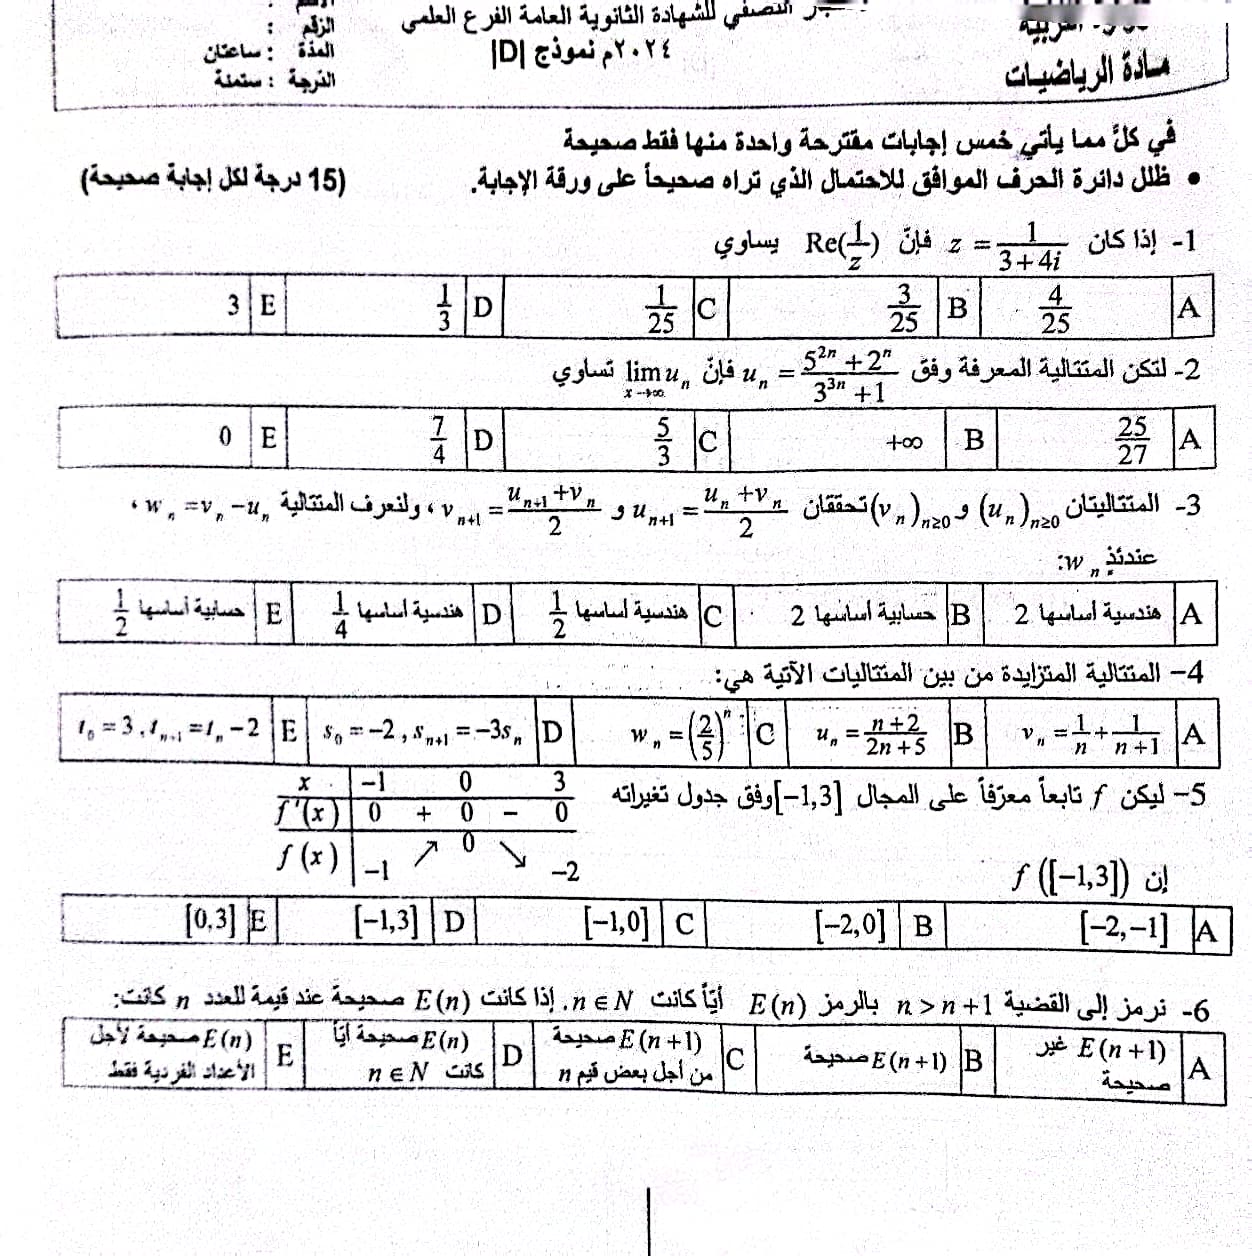 النصفي للشهادة الثانوية العامة الفرع العلمي
٢٠٢٤م نموذج |D|
الرقم :
المدة : ساعتان
الدرجة : ستمئة
مادة الرياضيات
في كلّ مما يأتي خمس إجابات مقترحة واحدة منها فقط صحيحة
• ظلل دائرة الحرف الموافق للاحتمال الذي تراه صحيحاً على ورقة الإجابة. (15 درجة لكل إجابة صحيحة)
1- إذا كان z = 1/(3+4i) فإنّ Re(1/z) يساوي
A 4/25 B 3/25 C 1/25 D 1/3 E 3
2- لتكن المتتالية المعرفة وفق u_n = (5^{2n} + 2^n)/(3^{3n} + 1) فإنّ lim_{x→+∞} u_n تساوي
A 25/27 B +∞ C 5/3 D 7/4 E 0
3- المتتاليتان (u_n)_{n≥0} و (v_n)_{n≥0} تحققان u_{n+1} = (u_n + v_n)/2 و v_{n+1} = (u_{n+1} + v_n)/2 ، ولنعرف المتتالية w_n = v_n − u_n ،
عندئذٍ w_n:
A هندسية أساسها 2 B حسابية أساسها 2 C هندسية أساسها 1/2 D هندسية أساسها 1/4 E حسابية أساسها 1/2
4- المتتالية المتزايدة من بين المتتاليات الآتية هي:
A v_n = 1/n + 1/(n+1) B u_n = (n+2)/(2n+5) C w_n = (2/5)^n D s_0 = −2 , s_{n+1} = −3s_n E t_0 = 3 , t_{n+1} = t_n − 2
5- ليكن f تابعاً معرّفاً على المجال [−1,3] وفق جدول تغيراته
x −1 0 3
f'(x) 0 + 0 − 0
f(x) −1 ↗ 0 ↘ −2
إن f([−1,3])
A [−2,−1] B [−2,0] C [−1,0] D [−1,3] E [0,3]
6- نرمز إلى القضية n > n+1 بالرمز E(n) أيّاً كانت n∈N. إذا كانت E(n) صحيحة عند قيمة للعدد n كانت:
A E(n+1) غير صحيحة B E(n+1) صحيحة C E(n+1) صحيحة من أجل بعض قيم n D E(n) صحيحة أيّاً كانت n∈N E E(n) صحيحة لأجل الأعداد الفردية فقط